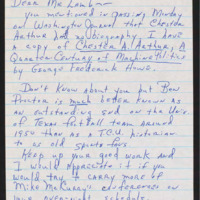 Dear Mr. Lamb—
You mentioned in passing, Monday
on Washington Journal that Chester
Arthur had no biography. I have
a copy of Chester A. Arthur, A
Quarter-Century of Machine Politics
by George Frederick Howe.
Don't know about you but
is much better known as
an outstanding end on the Univ
of Texas football team around
1950 than as a T.C.U. historian
to us old sports fans.
Keep up your good work and
I would appreciate it if you
would try & carry more of
"Mike McCurry" conferences on
your overnight schedule.